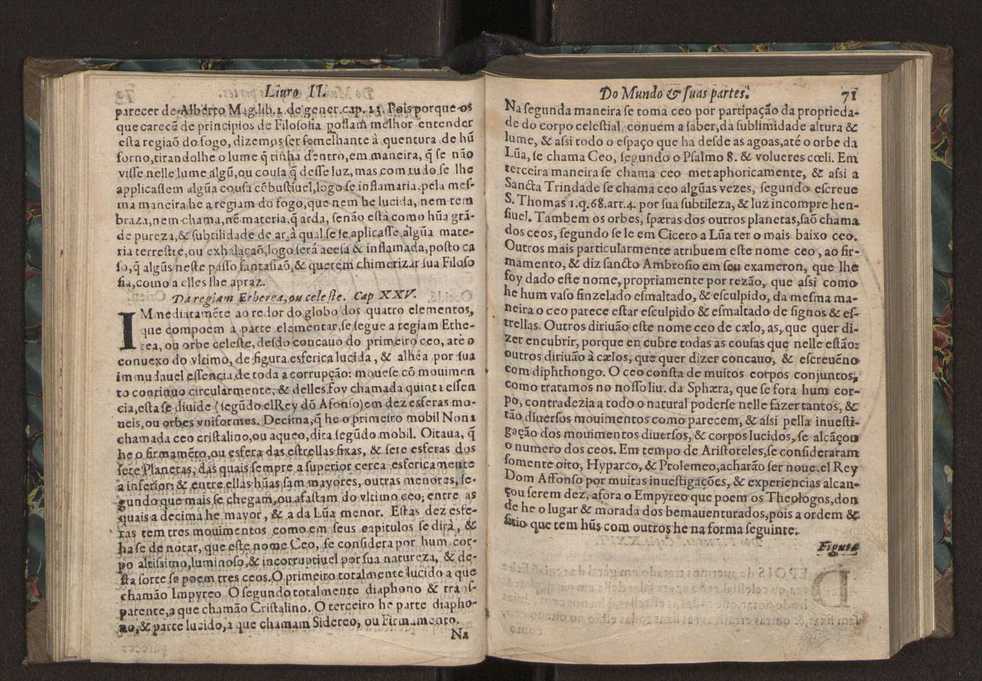 Liuro II.
parecer de Alberto Mag. lib. 1. de gener. cap. 25. Pois porque os
que carecẽ de principios de Filosofia possam melhor entender
esta regiaõ do fogo, dizemos ser somelhante à quentura de hũ
forno, tirandolhe o lume q̃ tinha dentro, em maneira, q̃ se não
visse nelle lume algũ, ou cousa q̃ desse luz, mas com tudo se lhe
applicassem algũa cousa cõbustiuel, logo se inflamaria. pela mes-
ma maneira he a regiam do fogo, que nem he lucida, nem tem
braza, nem chama, nẽ materia, q̃ arda, senão està como hũa grã-
de pureza, & subtilidade de ar, à qual se se aplicasse algũa mate-
ria terrestre, ou exhalaçaõ, logo serà acesa & inflamada, posto ca
so, q̃ algũs neste passo fantasiaõ, & querem chimerizar sua Filoso
fia, como a elles lhe apraz.
Da regiam Etherea, ou celeste. Cap XXV.
IMmediatamẽte ao redor do globo dos quatro elementos,
que compoem a parte elementar, se segue a regiam Ethe-
rea, ou orbe celeste, desdo concauo do primeiro ceo, atè o
conuexo do vltimo, de figura esferica lucida, & alhèa por sua
immudauel essencia de toda a corrupção: mouese cõ mouimen
to continuo circularmente, & delles foy chamada quinta essen
cia, esta se diuide (segũdo elRey dõ Afonso) em dez esferas mo-
ueis, ou orbes vniformes. Decima, q̃ he o primeiro mobil Nona
chamada ceo cristalino, ou aqueo, dita segũdo mobil. Oitaua, q̃
he o firmamẽto, ou esfera das estrellas fixas, & sete esferas dos
sete Planetas, das quais sempre a superior cerca esfericamente
a inferior: & entre ellas hũas sam mayores, outras menores, se-
gundo que mais se chegam, ou afastam do vltimo ceo, entre as
quais a decima he mayor, & a da Lũa menor. Estas dez esfe-
ras tem tres mouimentos como em seus capitulos se dirà, &
ha se de notar, que este nome Ceo, se considera por hum cor-
po altissimo, luminoso, & incorruptiuel por sua natureza, & de-
sta sorte se poem tres ceos. O primeiro totalmente lucido a que
chamão Impyreo O segundo totalmente diaphono & trans-
parente, a que chamão Cristalino. O terceiro he parte diapho-
no, & parte lucido, a que chamam Sidereo, ou Firmamento.
Na
Do Mundo & suas partes. 71
Na segunda maneira se toma ceo por partipação da proprieda-
de do corpo celestial, conuem a saber, da sublimidade altura &
lume, & assi todo o espaço que ha desde as agoas, atè o orbe da
Lũa, se chama Ceo, segundo o Psalmo 8. & volucres cœli. Em
terceira maneira se chama ceo metaphoricamente, & assi a
Sancta Trindade se chama ceo algũas vezes, segundo escreue
S. Thomas 1. q. 68. art. 4. por sua subtileza, & luz incomprehen-
siuel. Tambem os orbes, spæras dos outros planetas, saõ chama
dos ceos, segundo se le em Cicero a Lũa ter o mais baixo ceo.
Outros mais particularmente atribuem este nome ceo, ao fir-
mamento, & diz sancto Ambrosio em seu exameron, que lhe
foy dado este nome, propriamente por rezão, que assi como
he hum vaso sinzelado esmaltado, & esculpido, da mesma ma-
neira o ceo parece estar esculpido & esmaltado de signos & es-
trellas. Outros diriuão este nome ceo de cælo, as, que quer di-
zer encubrir, porque encubre todas as cousas que nelle estão:
outros diriuão à cælos, que quer dizer concauo, & escreuẽno
com diphthongo. O ceo consta de muitos corpos conjuntos,
como tratamos no nosso liu. da Sphæra, que se fora hum cor-
po, contradezia a todo o natural poderse nelle fazer tantos, &
tão diuersos mouimentos como parecem, & assi pella inuesti-
gação dos mouimentos diuersos, & corpos lucidos, se alcãçou
o numero dos ceos. Em tempo de Aristoteles, se consideraram
somente oito, Hyparco, & Ptolemeo, acharão ser noue. el Rey
Dom Affonso por muitas inuestigações, & experiencias alcan-
çou serem dez, afora o Empyreo que poem os Theologos, don
de he o lugar & morada dos bemauenturados, pois a ordem &
sitio que tem hũs com outros he na forma seguinte.
Figura